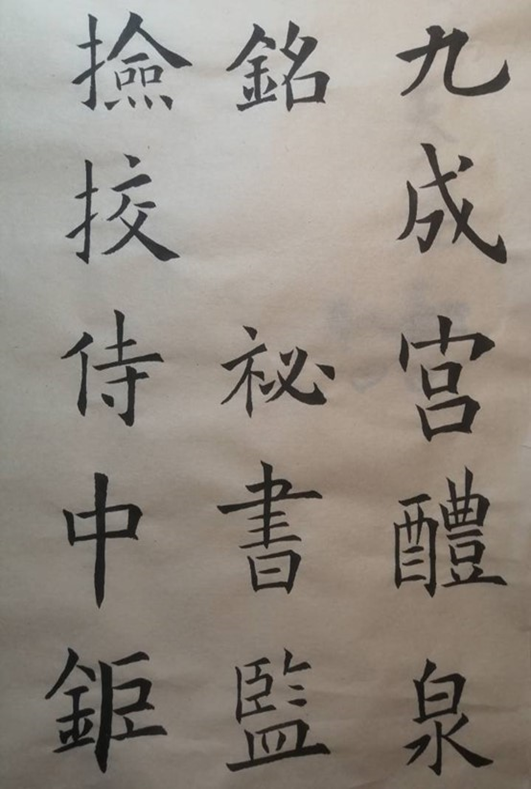 九成宮醴泉
銘 祕書監
撿挍侍中鉅